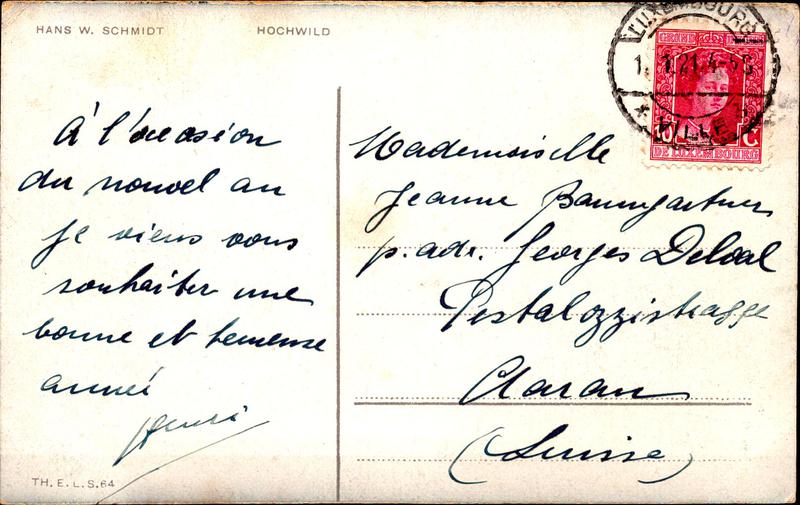 HANS W. SCHMIDT
HOCHWILD
À l'occasion
du nouvel an
je viens vous
souhaiter une
bonne et heureuse
année
Henri
TH. E. L. S. 64
LUXEMBOURG
1. 1.21. 4-5
VILLE
GRAND DUCHÉ
DE LUXEMBOURG
Mademoiselle
Jeanne Baumgartner
p. adr. Georges
Pestalozzistrasse
Aarau
(Suisse)